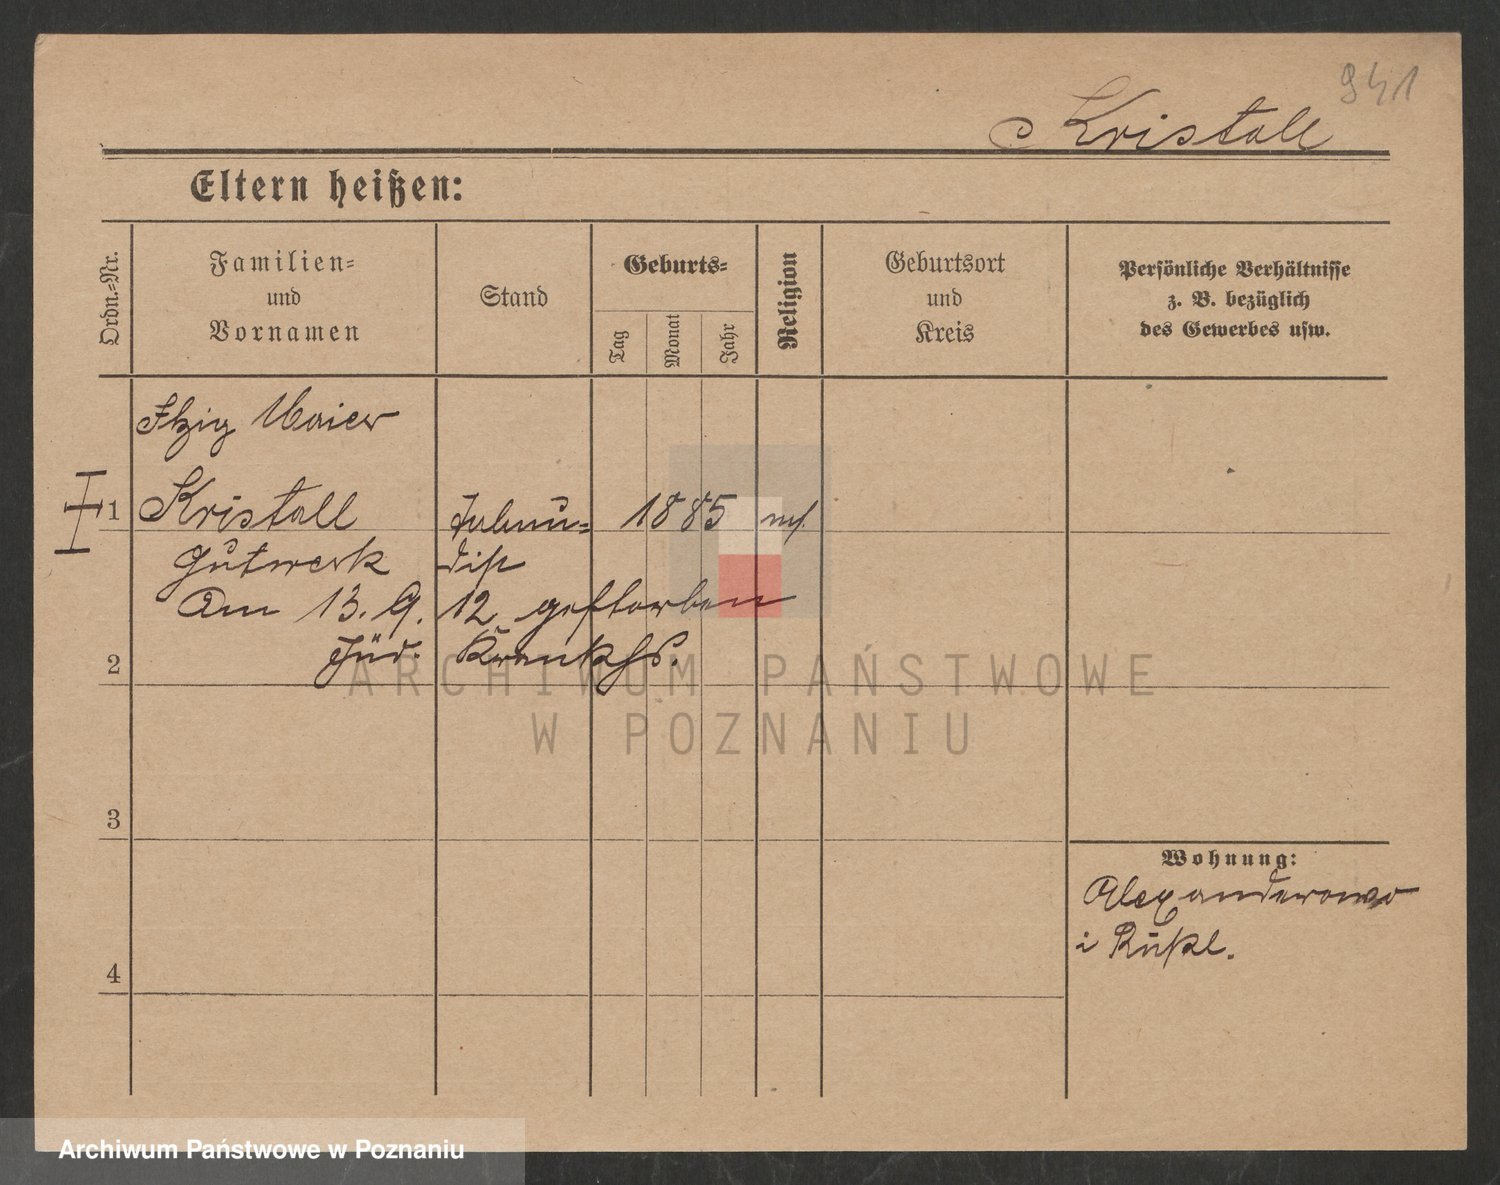 941
Kristall
Eltern heißen:
Ordn.-Nr.
Familien-
und
Vornamen
Stand
Geburts-
Tag
Monat
Jahr
Religion
Geburtsort
und
Kreis
Persönliche Verhältnisse
z. B. bezüglich
des Gewerbes usw.
Itzig Maier
1 Kristall Talmu= 1885
Gutwerk dist
Am 13. 9. 12 gestorben
Jüd. Krankhs.
2
3
4
Wohnung:
Alexanderowo
i Rußl.
ARCHIWUM PAŃSTWOWE
W POZNANIU
Archiwum Państwowe w Poznaniu